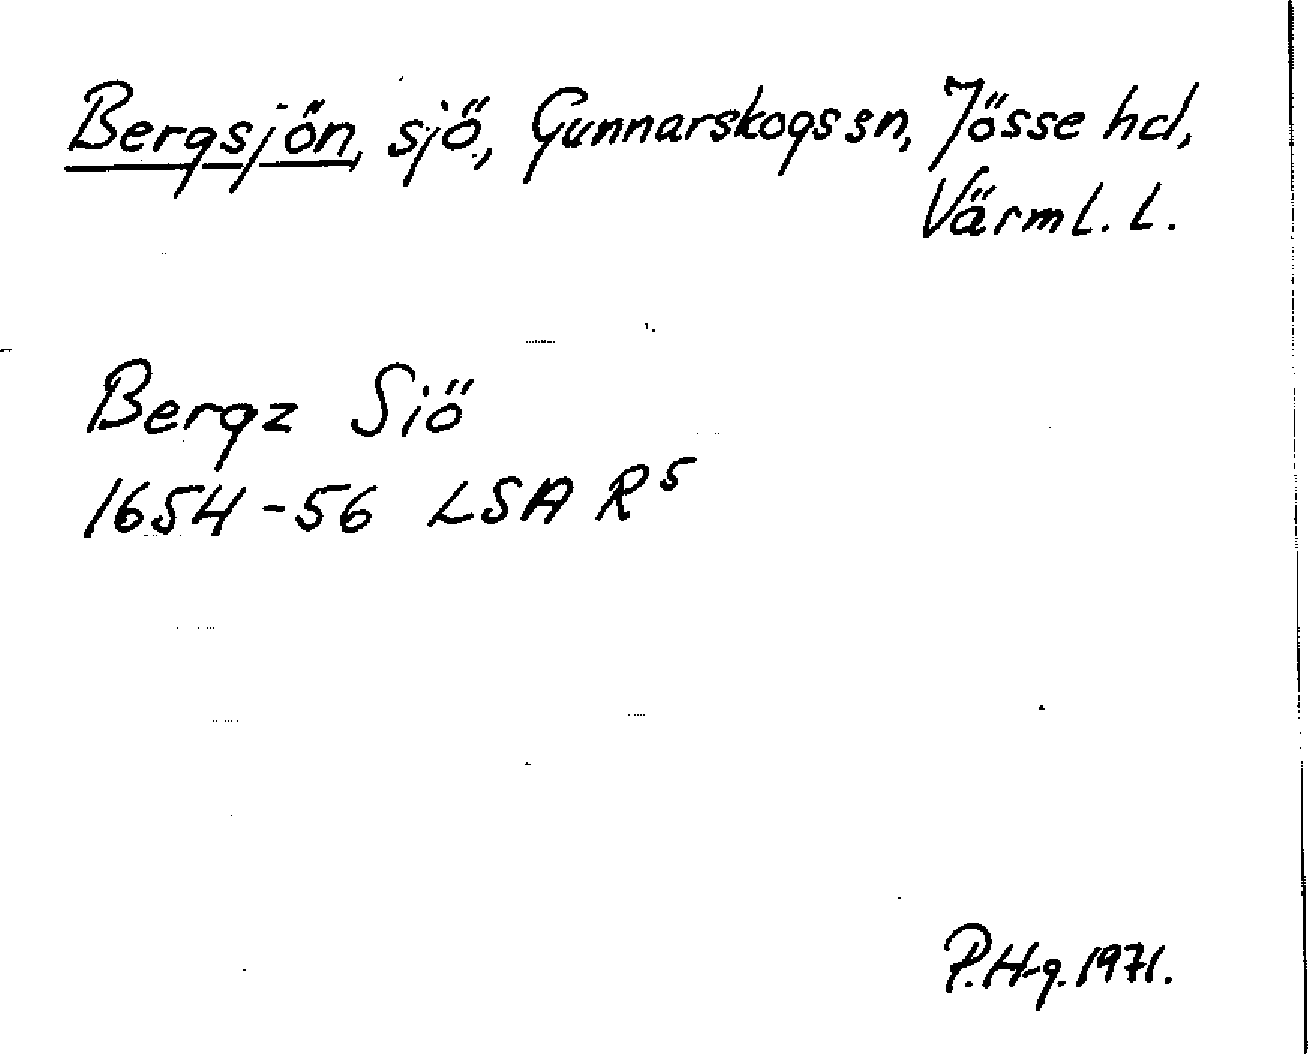 Bergsjön, sjö, Gunnarskogs sn, Jösse hd,
Värml. l.
Bergz Siö
1654-56 LSA R⁵
P. H-g. 1971.